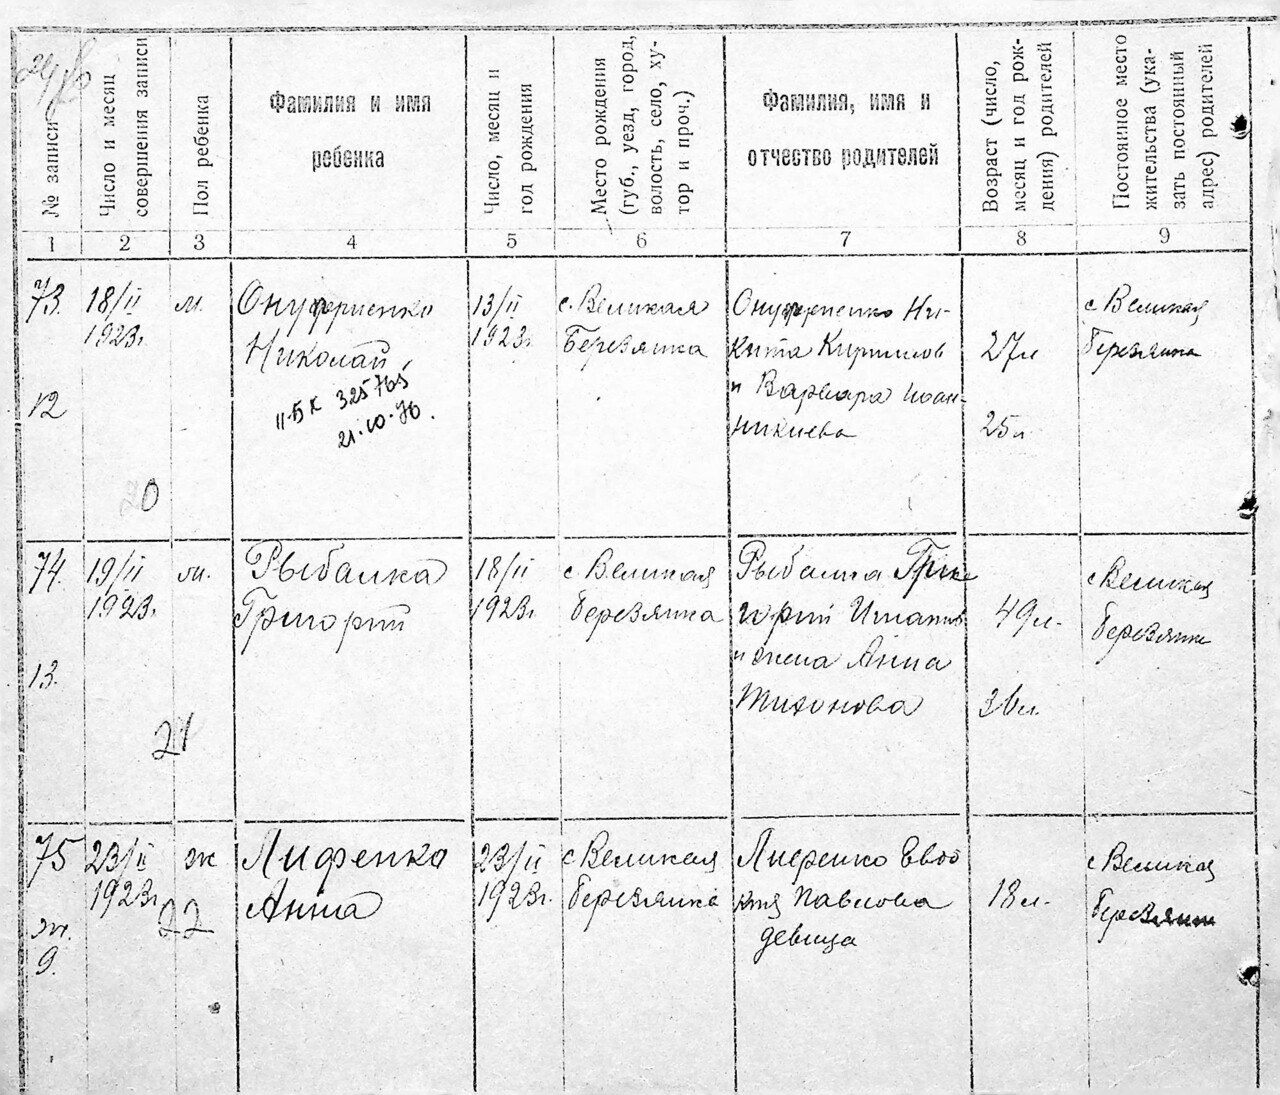 № записи
Число и месяц
совершения записи
Пол ребенка
Фамилия и имя
ребенка
Число, месяц и
год рождения
Место рождения
(губ., уезд, город,
волость, село, ху-
тор и проч.)
Фамилия, имя и
отчество родителей
Возраст (число,
месяц и год рож-
дения) родителей
Постоянное место
жительства (ука-
зать постоянный
адрес) родителей
1 2 3 4 5 6 7 8 9
73.
12
18/II
1923г.
20
м.
Онуфриенко
Николай
II-БК 325765
21.10.76.
13/II
1923г.
с. Великая
Березянка
Онуфриенко Ни-
кита Кириллов
и Варвара Иоан-
никиева
27л
25л
с Великая
Березянка
74.
13.
19/II
1923г.
21
м.
Рыбалка
Григорий
18/II
1923г.
с. Великая
Березянка
Рыбалка Григо
горий
и жена Анна
Тихонова
49л.
36л.
с Великая
Березянка
75
ж.
9.
23/II
1923г.
22
ж
Лифенко
Анна
23/II
1923г.
с Великая
Березянка
Лифенко Евдо
кия Павлова
девица
18л.
с Великая
Березянка